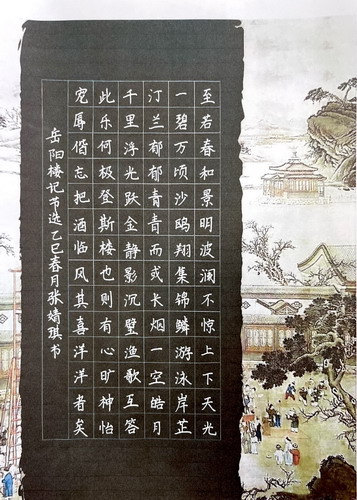 至若春和景明波澜不惊上下天光
一碧万顷沙鸥翔集锦鳞游泳岸芷
汀兰郁郁青青而或长烟一空皓月
千里浮光跃金静影沉璧渔歌互答
此乐何极登斯楼也则有心旷神怡
宠辱偕忘把酒临风其喜洋洋者矣
岳阳楼记节选乙巳春月张婧琪书